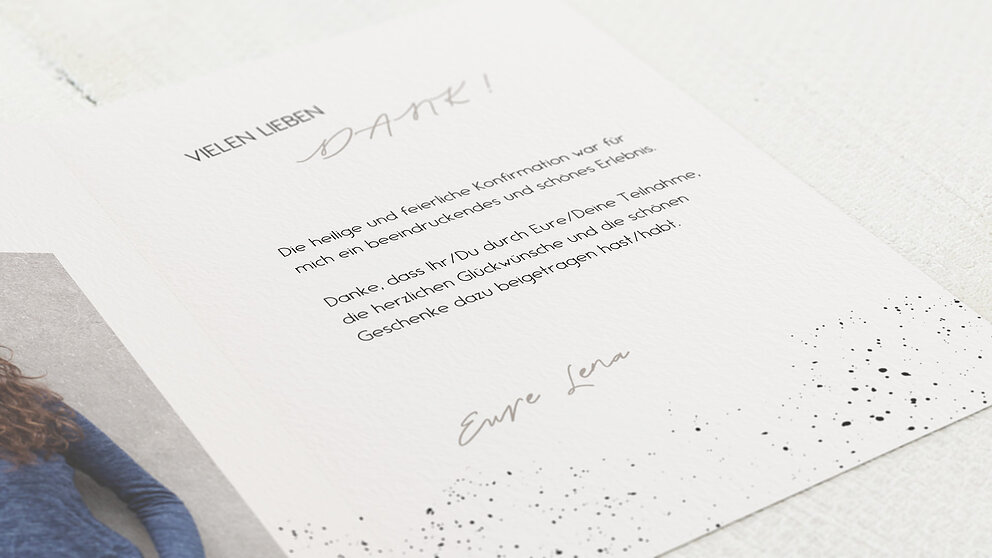 VIELEN LIEBEN
DANK!
Die heilige und feierliche Konfirmation war für
mich ein beeindruckendes und schönes Erlebnis.
Danke, dass Ihr/Du durch Eure/Deine Teilnahme,
die herzlichen Glückwünsche und die schönen
Geschenke dazu beigetragen hast/habt.
Eure Lena